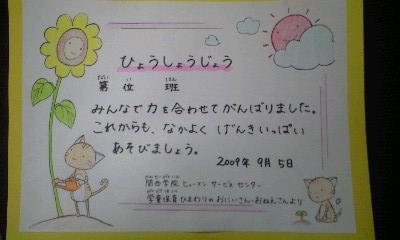 ひょうしょうじょう
第 位 班
みんなで力を合わせてがんばりました。
これからも、なかよく げんきいっぱい
あそびましょう。
2009年 9月 5日
関西学院ヒューマン サービス センター
学童保育ひまわりのおにいさん・おねえさんより